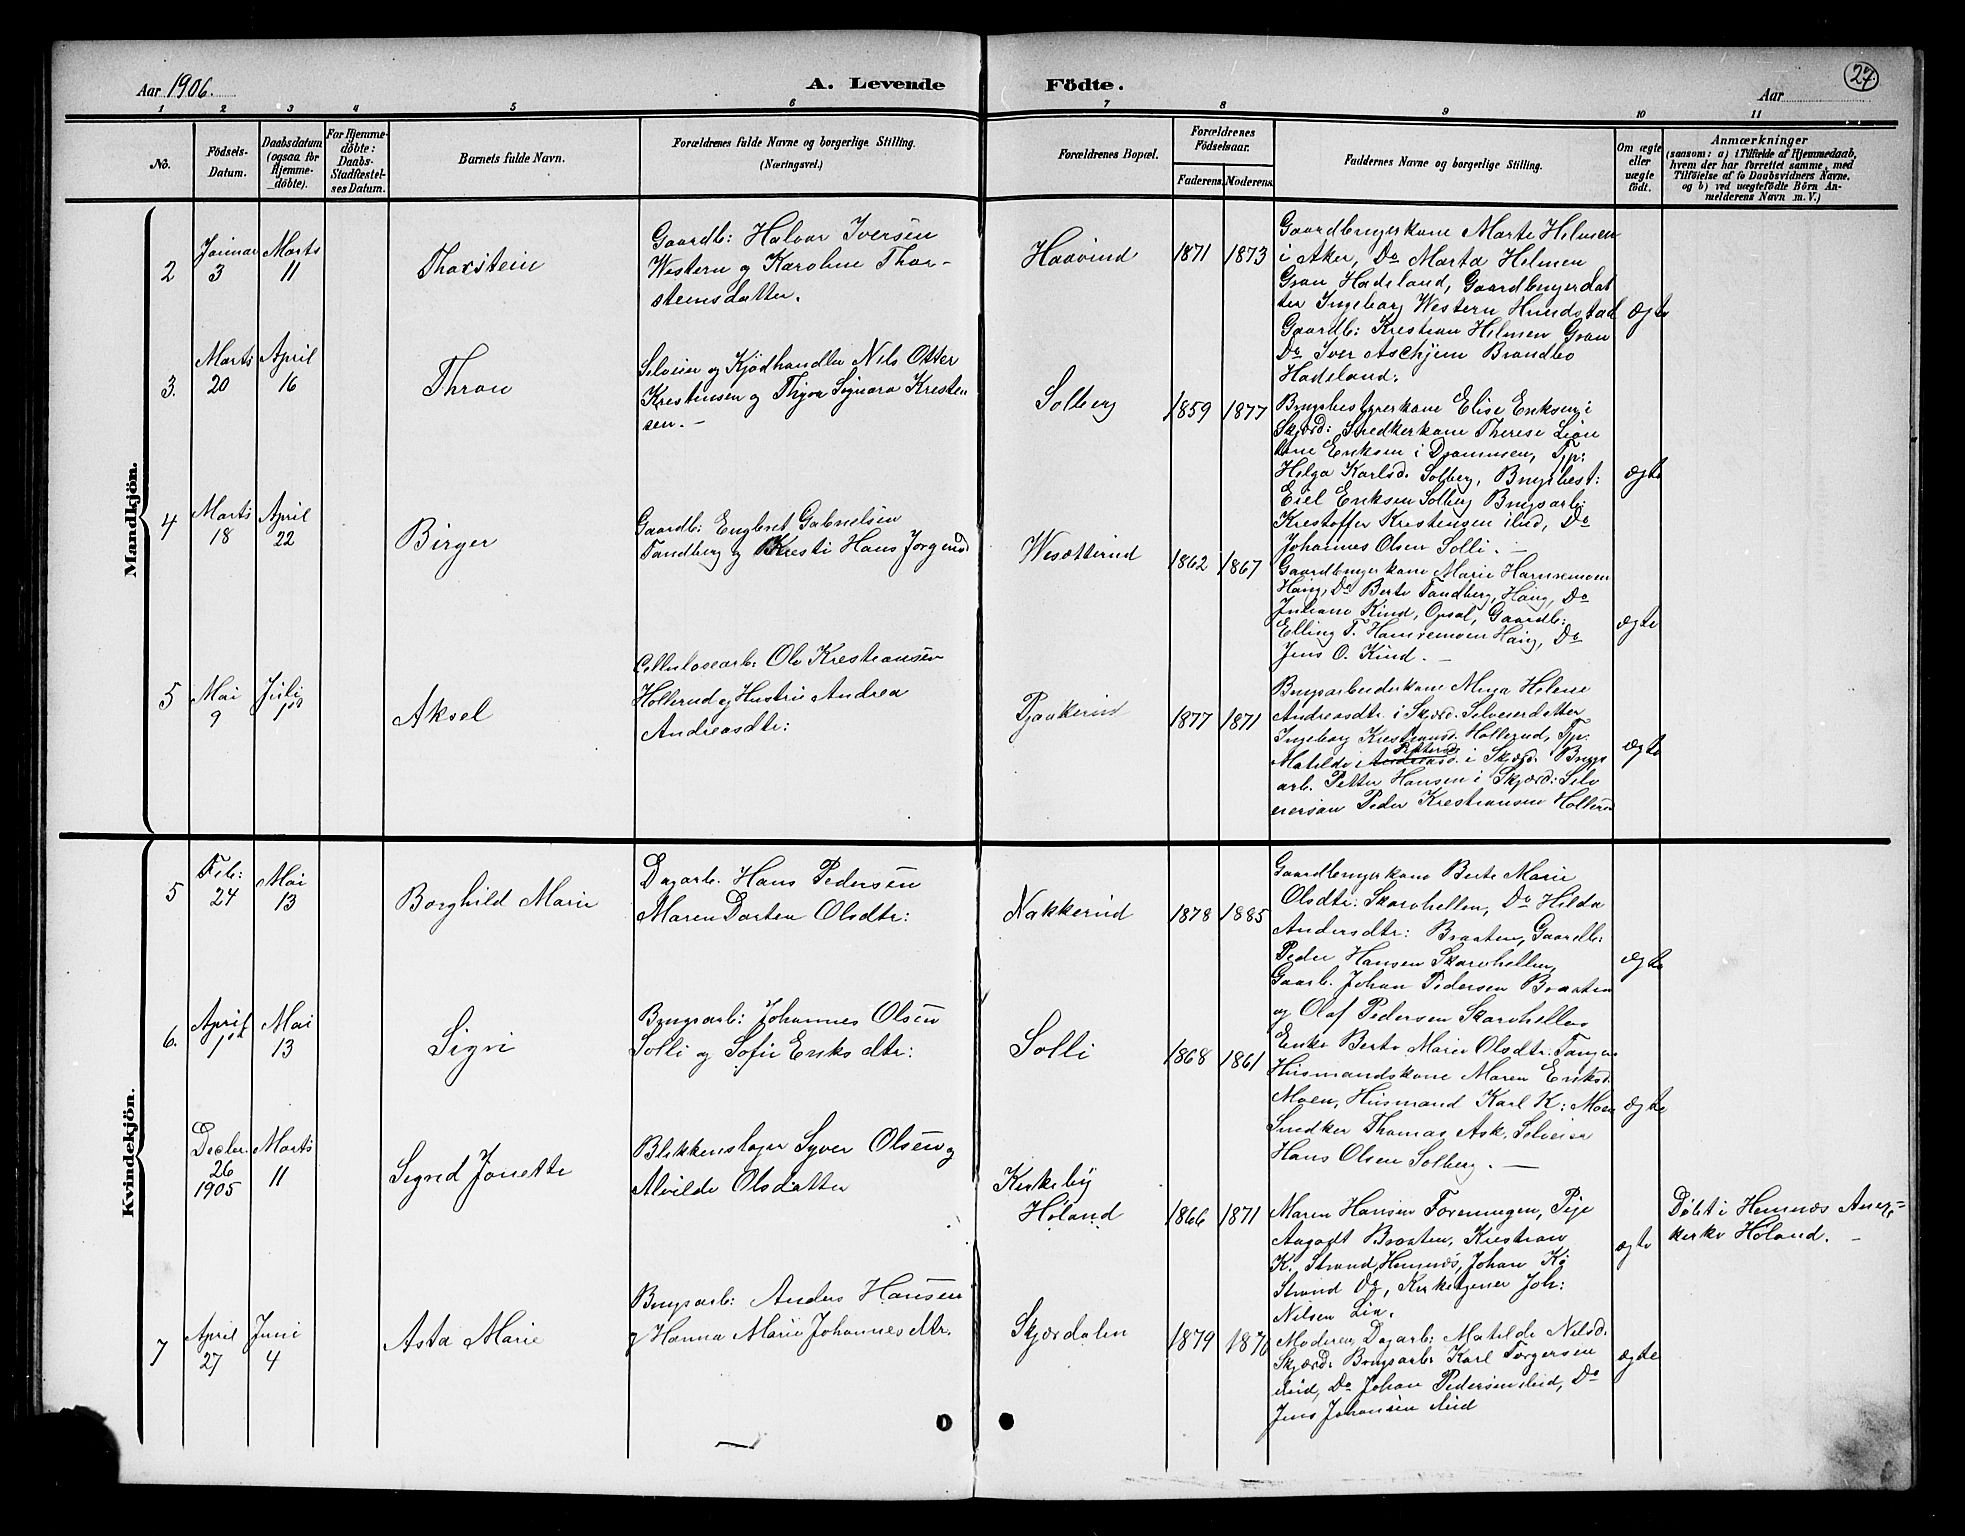 Aar 1906.
A. Levende
Födte.
Aar
27
1 2 3 4 5 6 7 8 9 10 11
No.
Födsels-
Datum.
Daabsdatum
(ogsaa for
Hjemme-
döbte).
For Hjemme-
döbte:
Daabs-
Stadfæstel-
ses Datum.
Barnets fulde Navn.
Forældrenes fulde Navne og borgerlige Stilling.
(Næringsvei.)
Forældrenes Bopæl.
Forældrenes
Födselsaar.
Faderens. Moderens.
Faddernes Navne og borgerlige Stilling.
Om ægte
eller
uægte
födt.
Anmærkninger
(saasom: a) i Tilfælde af Hjemmedaab,
hvem der har forrettet samme, med
Tilföielse af to Daabsvidners Navne.
og b) ved uægtefödte Börn An-
melderens Navn m. V.)
Mandkjön.
2
Januar
3
Marts
11
Thorstein
Gaardb: Halvor Iversen
Western og Karoline Thor-
steinsdatter.
Haavind
1871
1873
Gaardbrugerkone Marte Helmen
i Aker, Do Marta Helmen
Gran Hadeland, Gaardbrugerdat
ter Ingeborg Western Hundstad
Gaardb: Kristian Helmen Gran
Do Iver Aschjem Brandbo
Hadeland.
ægte
3.
Marts
20
April
16
Thron
Selveier og Kjødhandler Nils Otter
Kristensen og Thyra Signora Kristen
sen. -
Solberg
1859
1877
Brugsbestyrerkone Elise Eriksen i
Skjærd: Snedkerkone Therese
Eriksen i Drammen, Tp:
Helga Karlsd. Solberg, Brugsbest:
Eriksen Solberg Brugsarb:
Kristoffer Kristensen ibid, Do
Johannes Olsen Solli. -
ægte
4
Marts
18
April
22
Birger
Gaardb: Engbret Gabrielsen
Tandberg og Kristi Hans Jorgensd
Wesetterud
1862
1867
Gaardbrugerkone Marie Hamremoen
Haug, Do Berte Tandberg, Haug, Do
Juliane Kind, Opsal, Gaardb:
Elling T. Hamremoen Haug, Do
Jens O. Kind. -
ægte
5
Mai
9
Juli
1st
Aksel
Cellulosearb: Ole Kristiansen
Hollerud og Hustru Andrea
Andreasdtr:
Tjaakerud
1877
1871
Brugsarbeiderkone Mina Helene
Andreasdtr. i Skjærd. Selveierdatter
Ingeborg Kristiansd. Hollerud, Tp:
Matilde Pettersd. i Skjærd. Brugs
arb. Petter Hansen i Skjærd: Selv
eiersøn Peder Kristiansen Hollerud
ægte
Kvindekjön.
5
Feb:
24
Mai
13
Borghild Marie
Dagarb. Hans Pedersen
Maren Dorten Olsdtr:
Nakkerud
1878
1885
Gaardbrugerkone Berte Marie
Olsdtr: Skarvhellen, Do Hilda
Andersdtr: Braaten, Gaardb:
Peder Hansen Skarvhellen
Gaarb. Johan Pedersen Braaten
og Olaf Pedersen Skarvhellen
ægte
6.
April
1st
Mai
13
Sigri
Brugsarb: Johannes Olsen
Solli og Sofie Eriksdtr:
Solli
1868
1861
Enke Berte Marie Olsdtr: Tangen
Husmandskone Maren Eriksd.
Moen, Husmand Karl K: Moen
Snedker Thomas Ask, Selveier
Hans Olsen Solberg. -
ægte
Decbr.
26
1905
Marts
11
Sigrid Jonette
Blikkenslager Syver Olsen og
Alvilde Olsdatter
Kirkeby
Høland
1866
1871
Maren Hansen Foreningen, Pige
Aagodt Braaten, Kristian
K. Strand, Hemnæs, Johan K.
Strand Do, Kirketjener Joh:
Nilsen Lia.
ægte
Døbt i Hemnæs Anex-
kirke Høland. -
7
April
27
Juni
4
Asta Marie
Brugsarb: Anders Hansen
og Hanna Marie Johannesdtr.
Skjærdalen
1879
1876
Moderen, Dagarb: Matilde Nilsd.
Skjærd: Brugsarb: Karl Torgersen
ibid, Do Johan Pedersen ibid, Do
Jens Johansen ibid
ægte